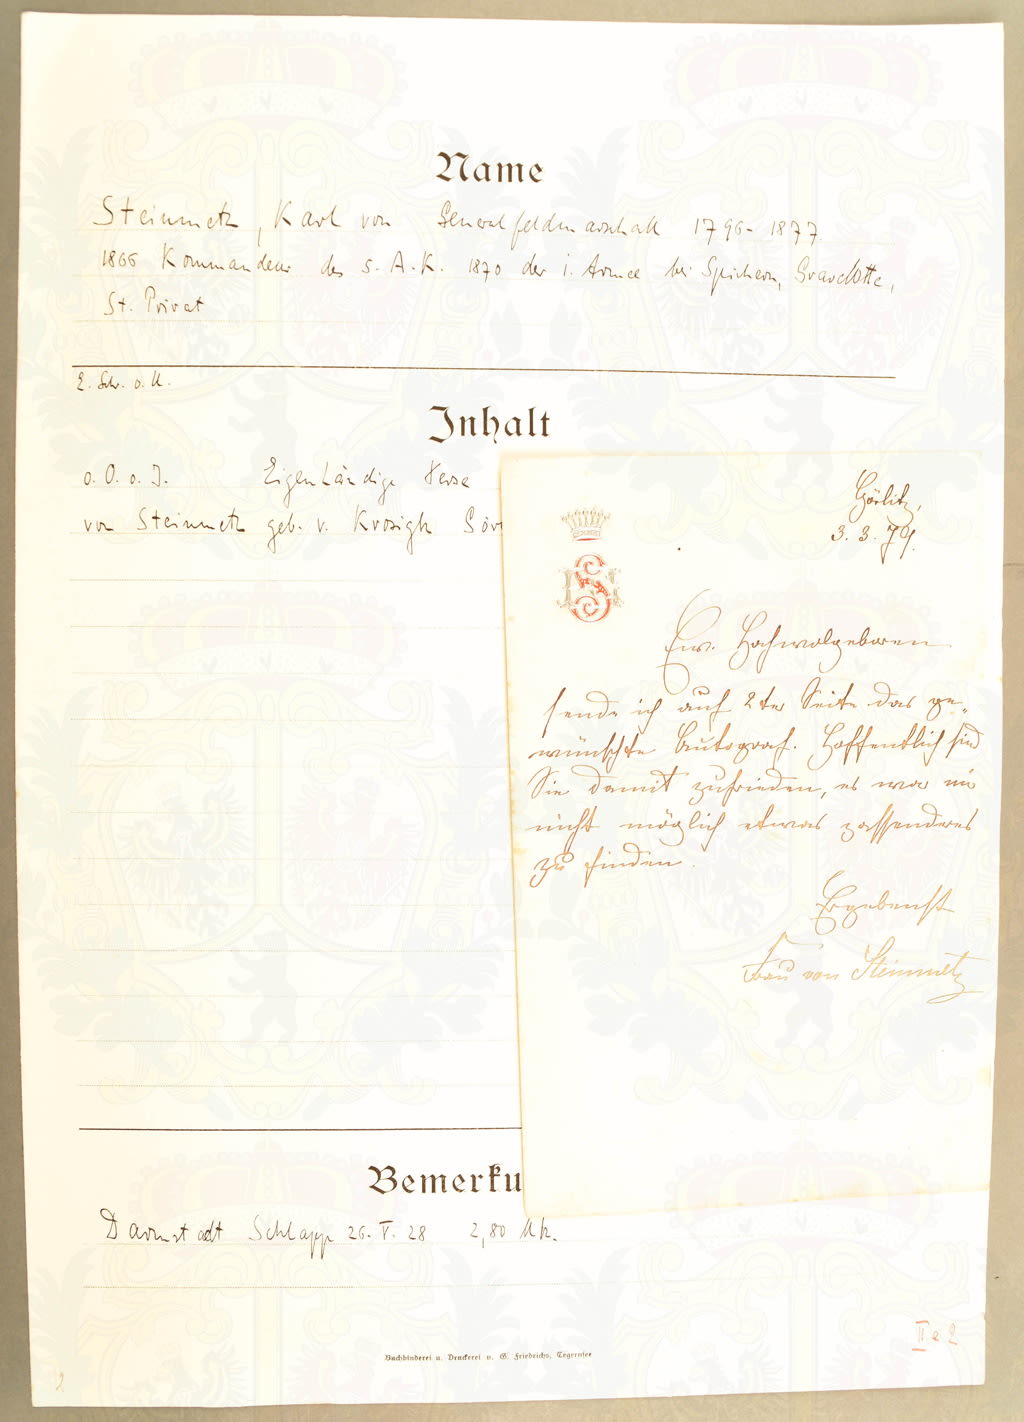 Name
Steinmetz, Karl von Generalfeldmarschall 1796-1877
1866 Kommandeur des 5. A.K. 1870 der 1. Armee bei Spichern, Gravelotte,
St. Privat
E. Schr. o. U.
Inhalt
o. O. o. J. Eigenhändige Verse
von Steinmetz geb. v. Krosigk Gör
Görlitz,
3. 3. 79.
S
Ew. Hochwolgeboren
sende ich auf 2ter Seite das ge-
wünschte Autograf. Hoffentlich sind
Sie damit zufrieden, es war mir
nicht möglich etwas passenderes
zu finden.
Ergebenst
Frau von Steinmetz
Bemerku
Darmstadt Schlapp 26. V. 28 2,80 Mk.
II e 2
Buchbinderei u. Druckerei v. G. Friedrichs, Tegernsee
2